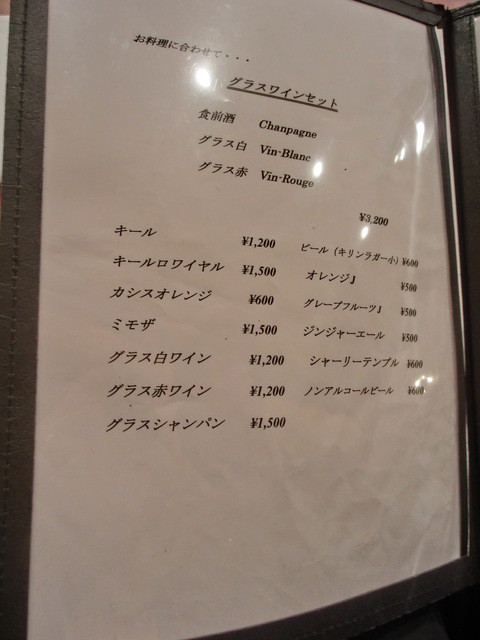 お料理に合わせて・・・
グラスワインセット
食前酒 Chanpagne
グラス白 Vin-Blanc
グラス赤 Vin-Rouge
¥3,200
キール ¥1,200
キールロワイヤル ¥1,500
カシスオレンジ ¥600
ミモザ ¥1,500
グラス白ワイン ¥1,200
グラス赤ワイン ¥1,200
グラスシャンパン ¥1,500
ビール（キリンラガー小）¥600
オレンジJ ¥500
グレープフルーツJ ¥500
ジンジャーエール ¥500
シャーリーテンプル ¥600
ノンアルコールビール ¥600